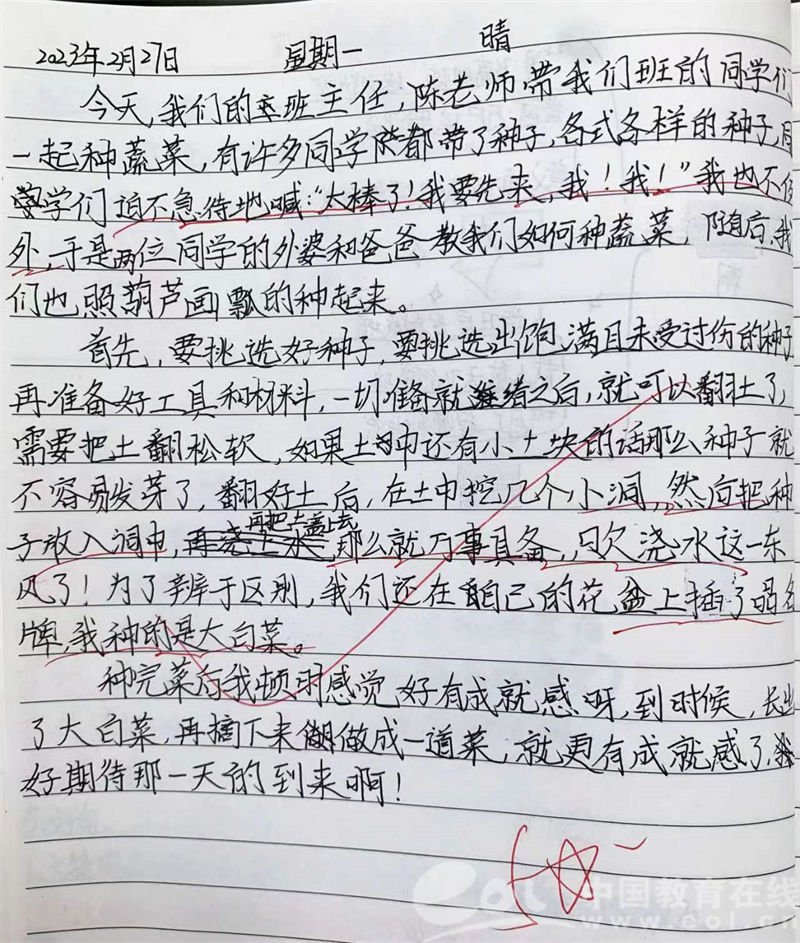 2023年2月27日 星期一 晴
今天,我们的班主任,陈老师带我们班的同学们
一起种蔬菜,有许多同学都带了种子,各式各样的种子,同
学们迫不急待地喊:“太棒了!我要先来,我!我!”我也不例
外,于是两位同学的外婆和爸爸教我们如何种蔬菜,随后,我
们也照葫芦画瓢的种起来。
首先,要挑选好种子,要挑选出饱满且未受过份的种子
再准备好工具和材料,一切准备就绪之后,就可以翻土了,
需要把土翻松软,如果土中还有小土块的话那么种子就
不容易发芽了,翻好土后,在土中挖几个小洞,然后把种
子放入洞中,再把土盖上去,那么就万事具备,只欠浇水这一东
风了!为了辨于区别,我们还在自己的花盆上插了品名
牌,我种的是大白菜。
种完菜后我顿时感觉好有成就感呀,到时候,长出
了大白菜,再摘下来做成一道菜,就更有成就感了,
好期待那一天的到来啊!
eol 中国教育在线
www.eol.cn